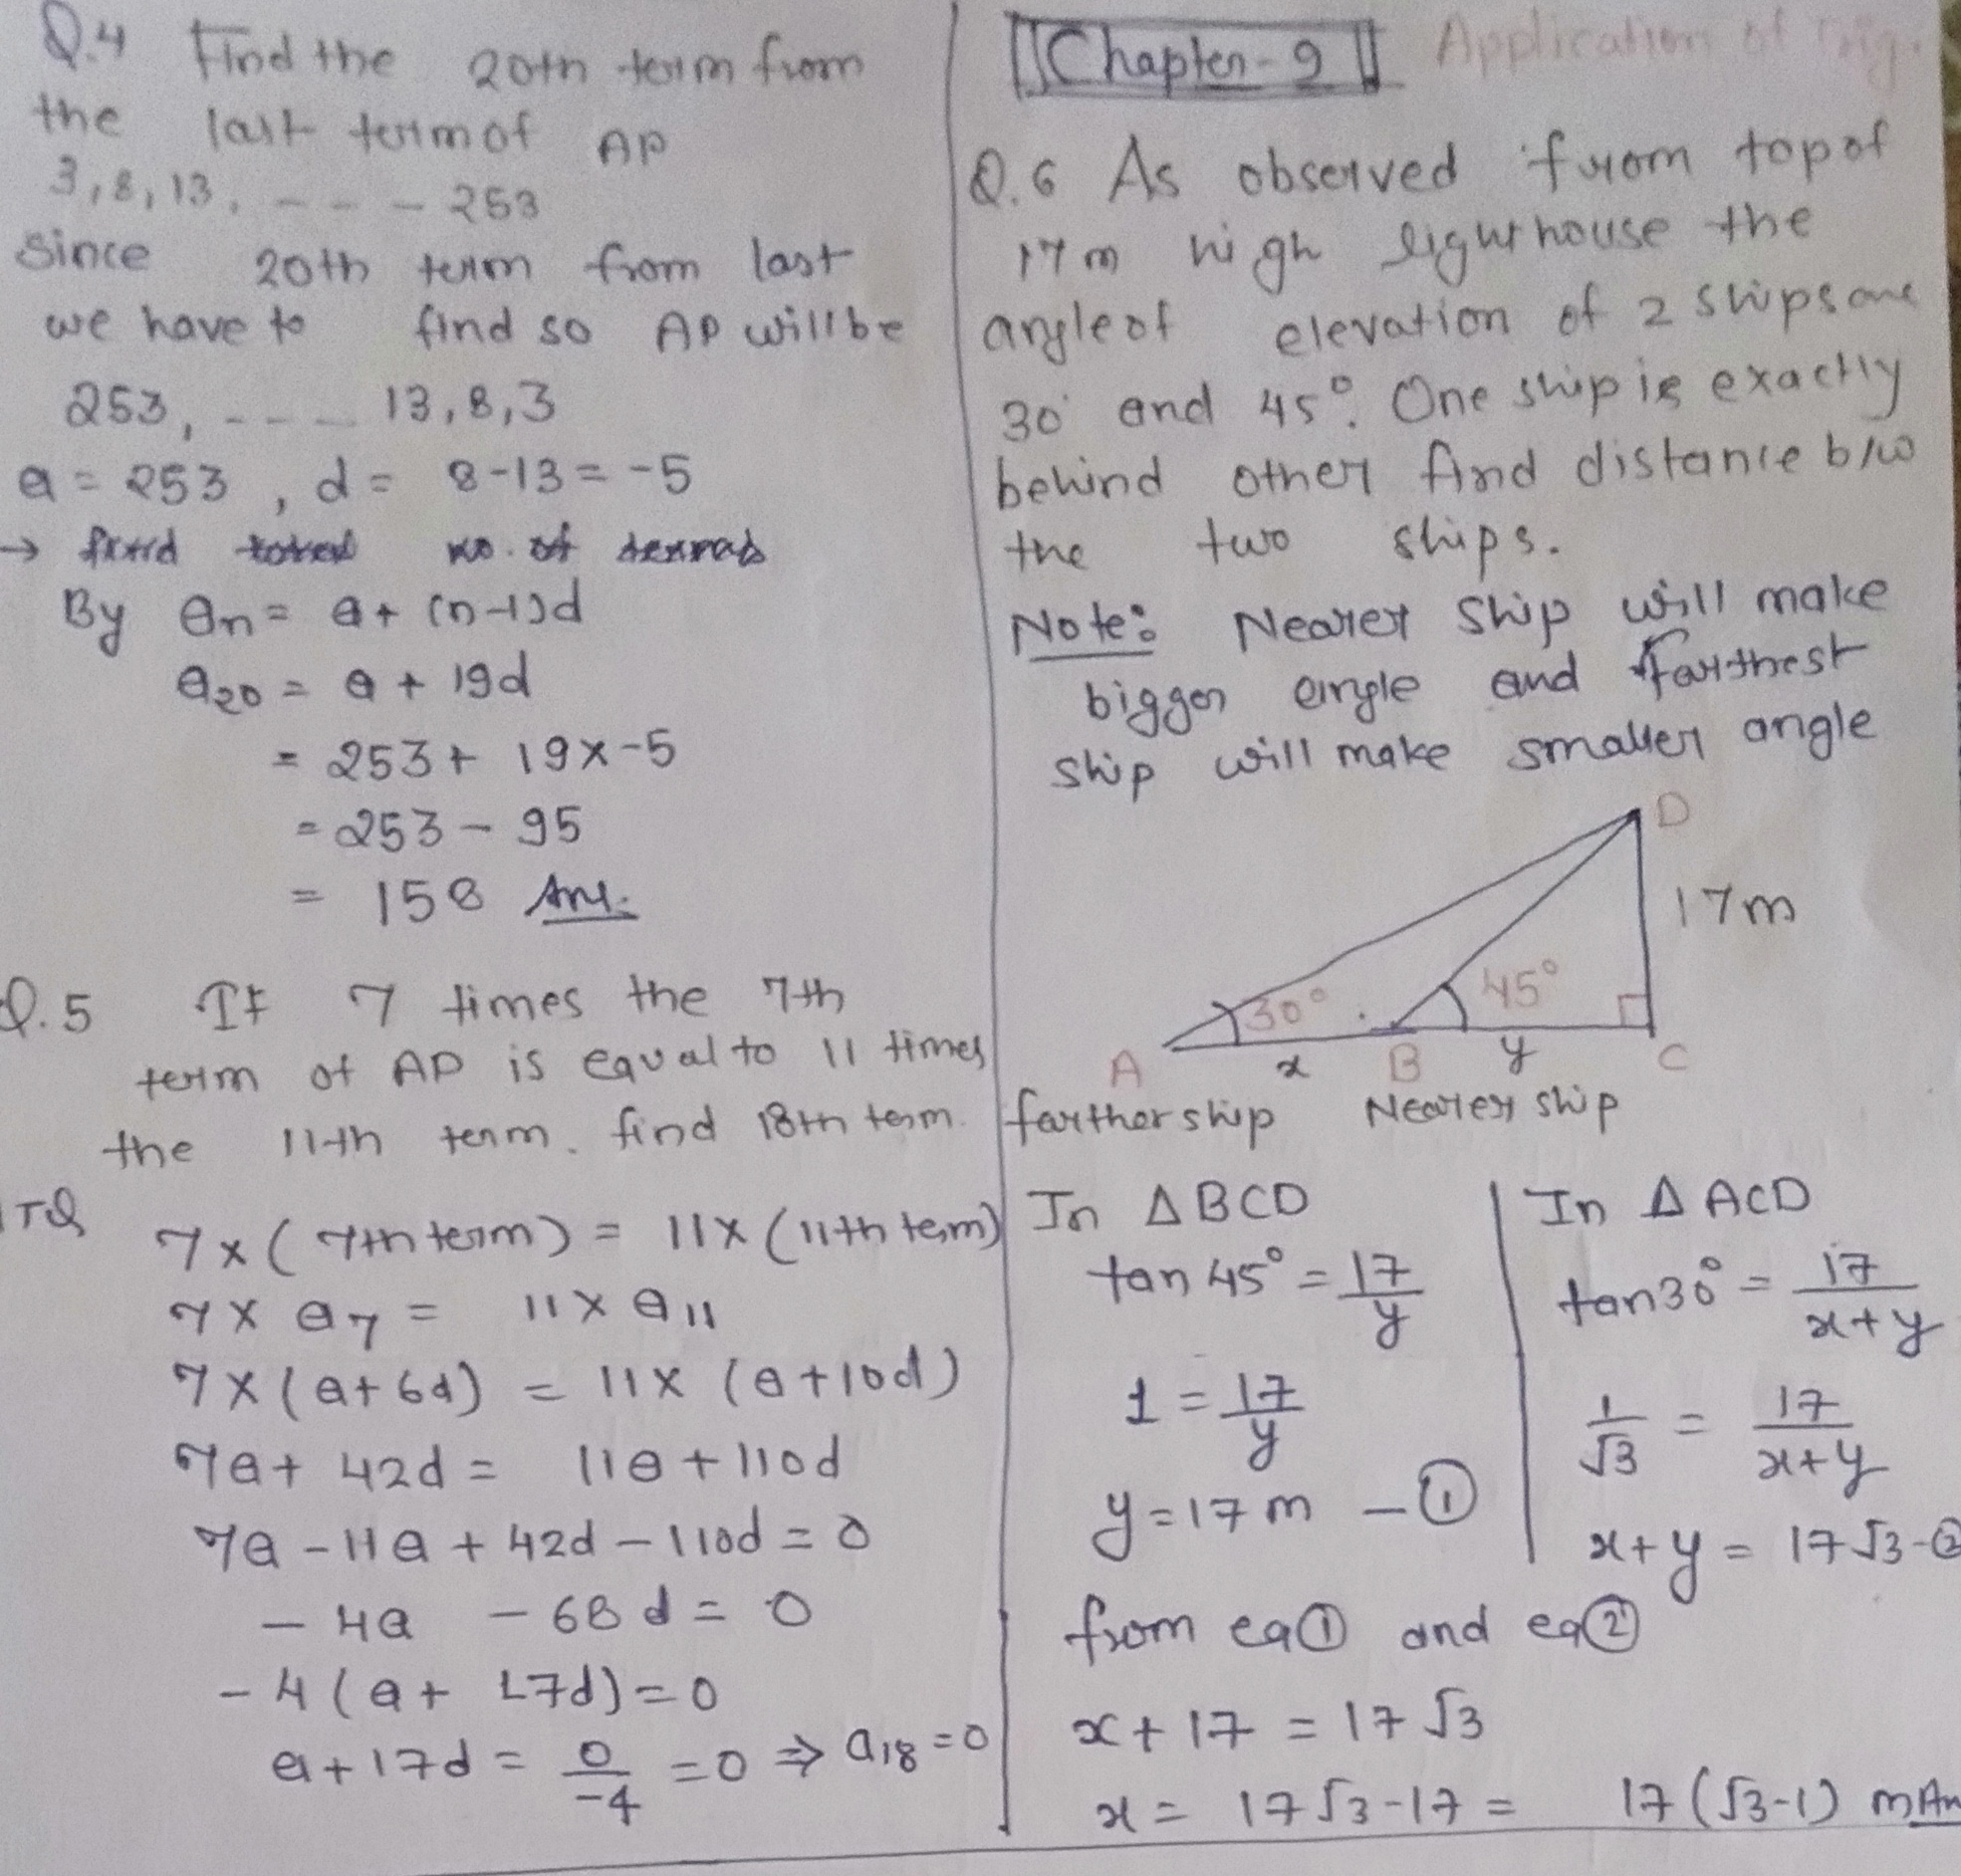 Q.4 Find the 20th term from
the last term of AP
3, 8, 13, - - - - 253
Since 20th term from last
we have to find so AP will be
253, - - - - 13, 8, 3
a = 253 , d = 8-13 = -5
→ find total no. of terms
By an = a + (n-1)d
a20 = a + 19d
= 253 + 19x-5
= 253 - 95
= 158 Ans.
Q.5 If 7 times the 7th
term of AP is equal to 11 times
the 11th term. find 18th term.
ATQ
7 x ( 7th term) = 11x (11th term)
7 x a7 = 11 x a11
7 x (a+6d) = 11x (a+10d)
7a + 42d = 11a + 110d
7a - 11a + 42d - 110d = 0
- 4a - 68d = 0
- 4 (a + 17d) = 0
a + 17d = 0/-4 = 0 ⇒ a18 = 0
Chapter-9 Application of Trig.
Q.6 As observed from top of
17m high lighthouse the
angle of elevation of 2 ships are
30° and 45°. One ship is exactly
behind other find distance b/w
the two ships.
Note: Nearer ship will make
bigger angle and farthest
ship will make smaller angle
D
17m
30° 45°
A x B y C
farther ship Nearer ship
In Δ BCD
tan 45° = 17/y
1 = 17/y
y = 17 m - ①
In Δ ACD
tan30° = 17/x+y
1/√3 = 17/x+y
x+y = 17√3 - ②
from eq ① and eq ②
x + 17 = 17√3
x = 17√3-17 = 17(√3-1) m An